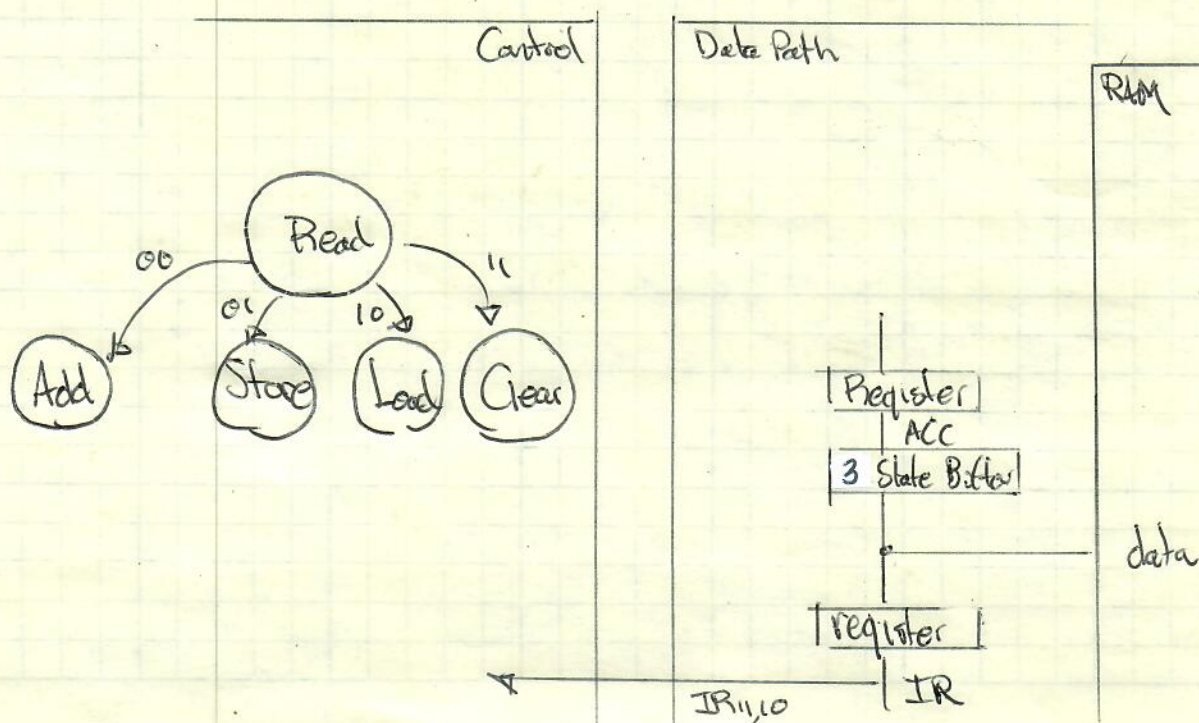 Control
Data Path
RAM
Read
00
01
10
11
Add
Store
Load
Clear
Register
ACC
3 State Buffer
data
register
IR
IR11,10